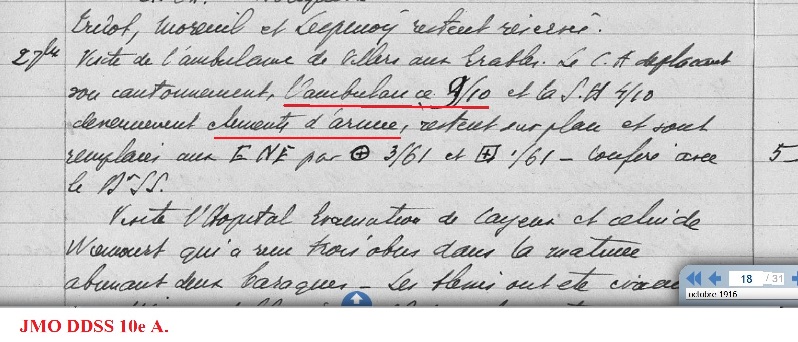 Moreuil et restent réservés.
27bre Visite de l'ambulance de Villers aux Erables. Le C.A déplaçant
son cantonnement, l'ambulance 9/10 et la S.H 4/10
deviennent éléments d'armée, restent sur place et sont
remplacés aux ENE par ⊕ 3/61 et ⊞ 1/61 – Conféré avec 5
le SS.
Visite l'Hopital Evacuation de Cayeux et celui de
qui a reçu trois obus dans la matinée
abimant deux baraques – Les blessés ont été
18 / 31
octobre 1916
JMO DDSS 10e A.